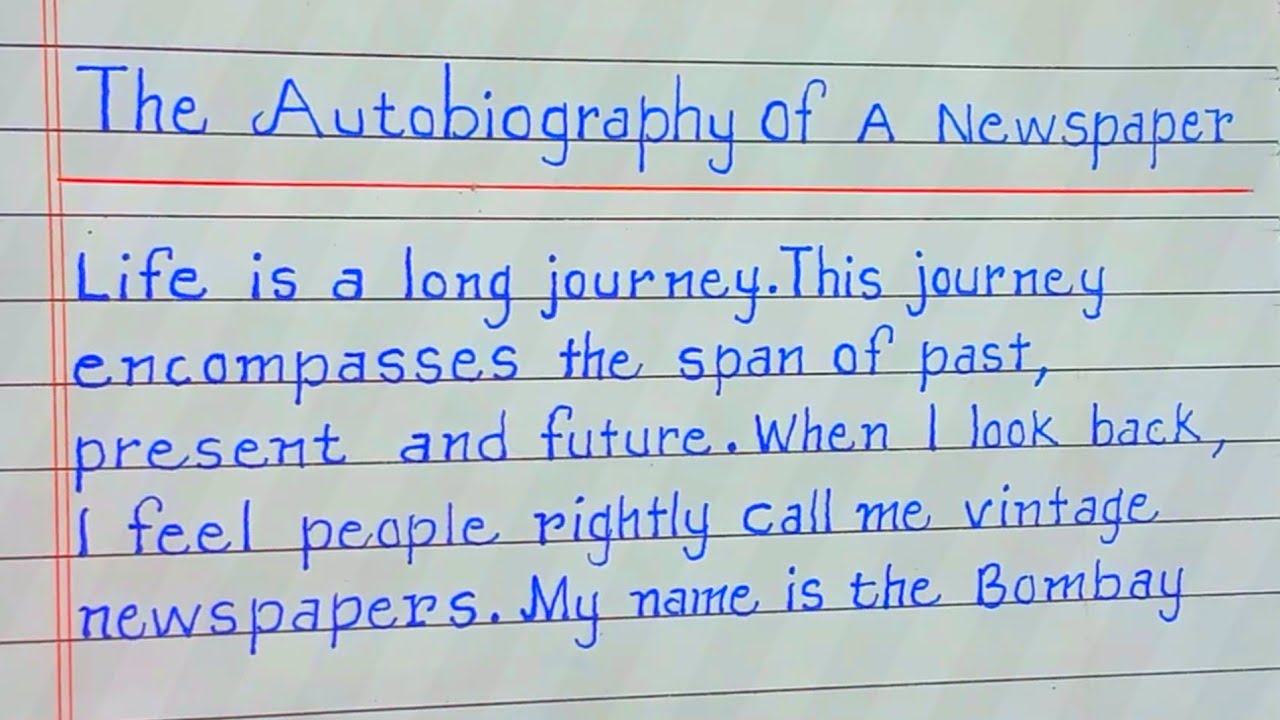 The Autobiography of A Newspaper
Life is a long journey. This journey
encompasses the span of past,
present and future. When I look back,
I feel people rightly call me vintage
newspapers. My name is the Bombay